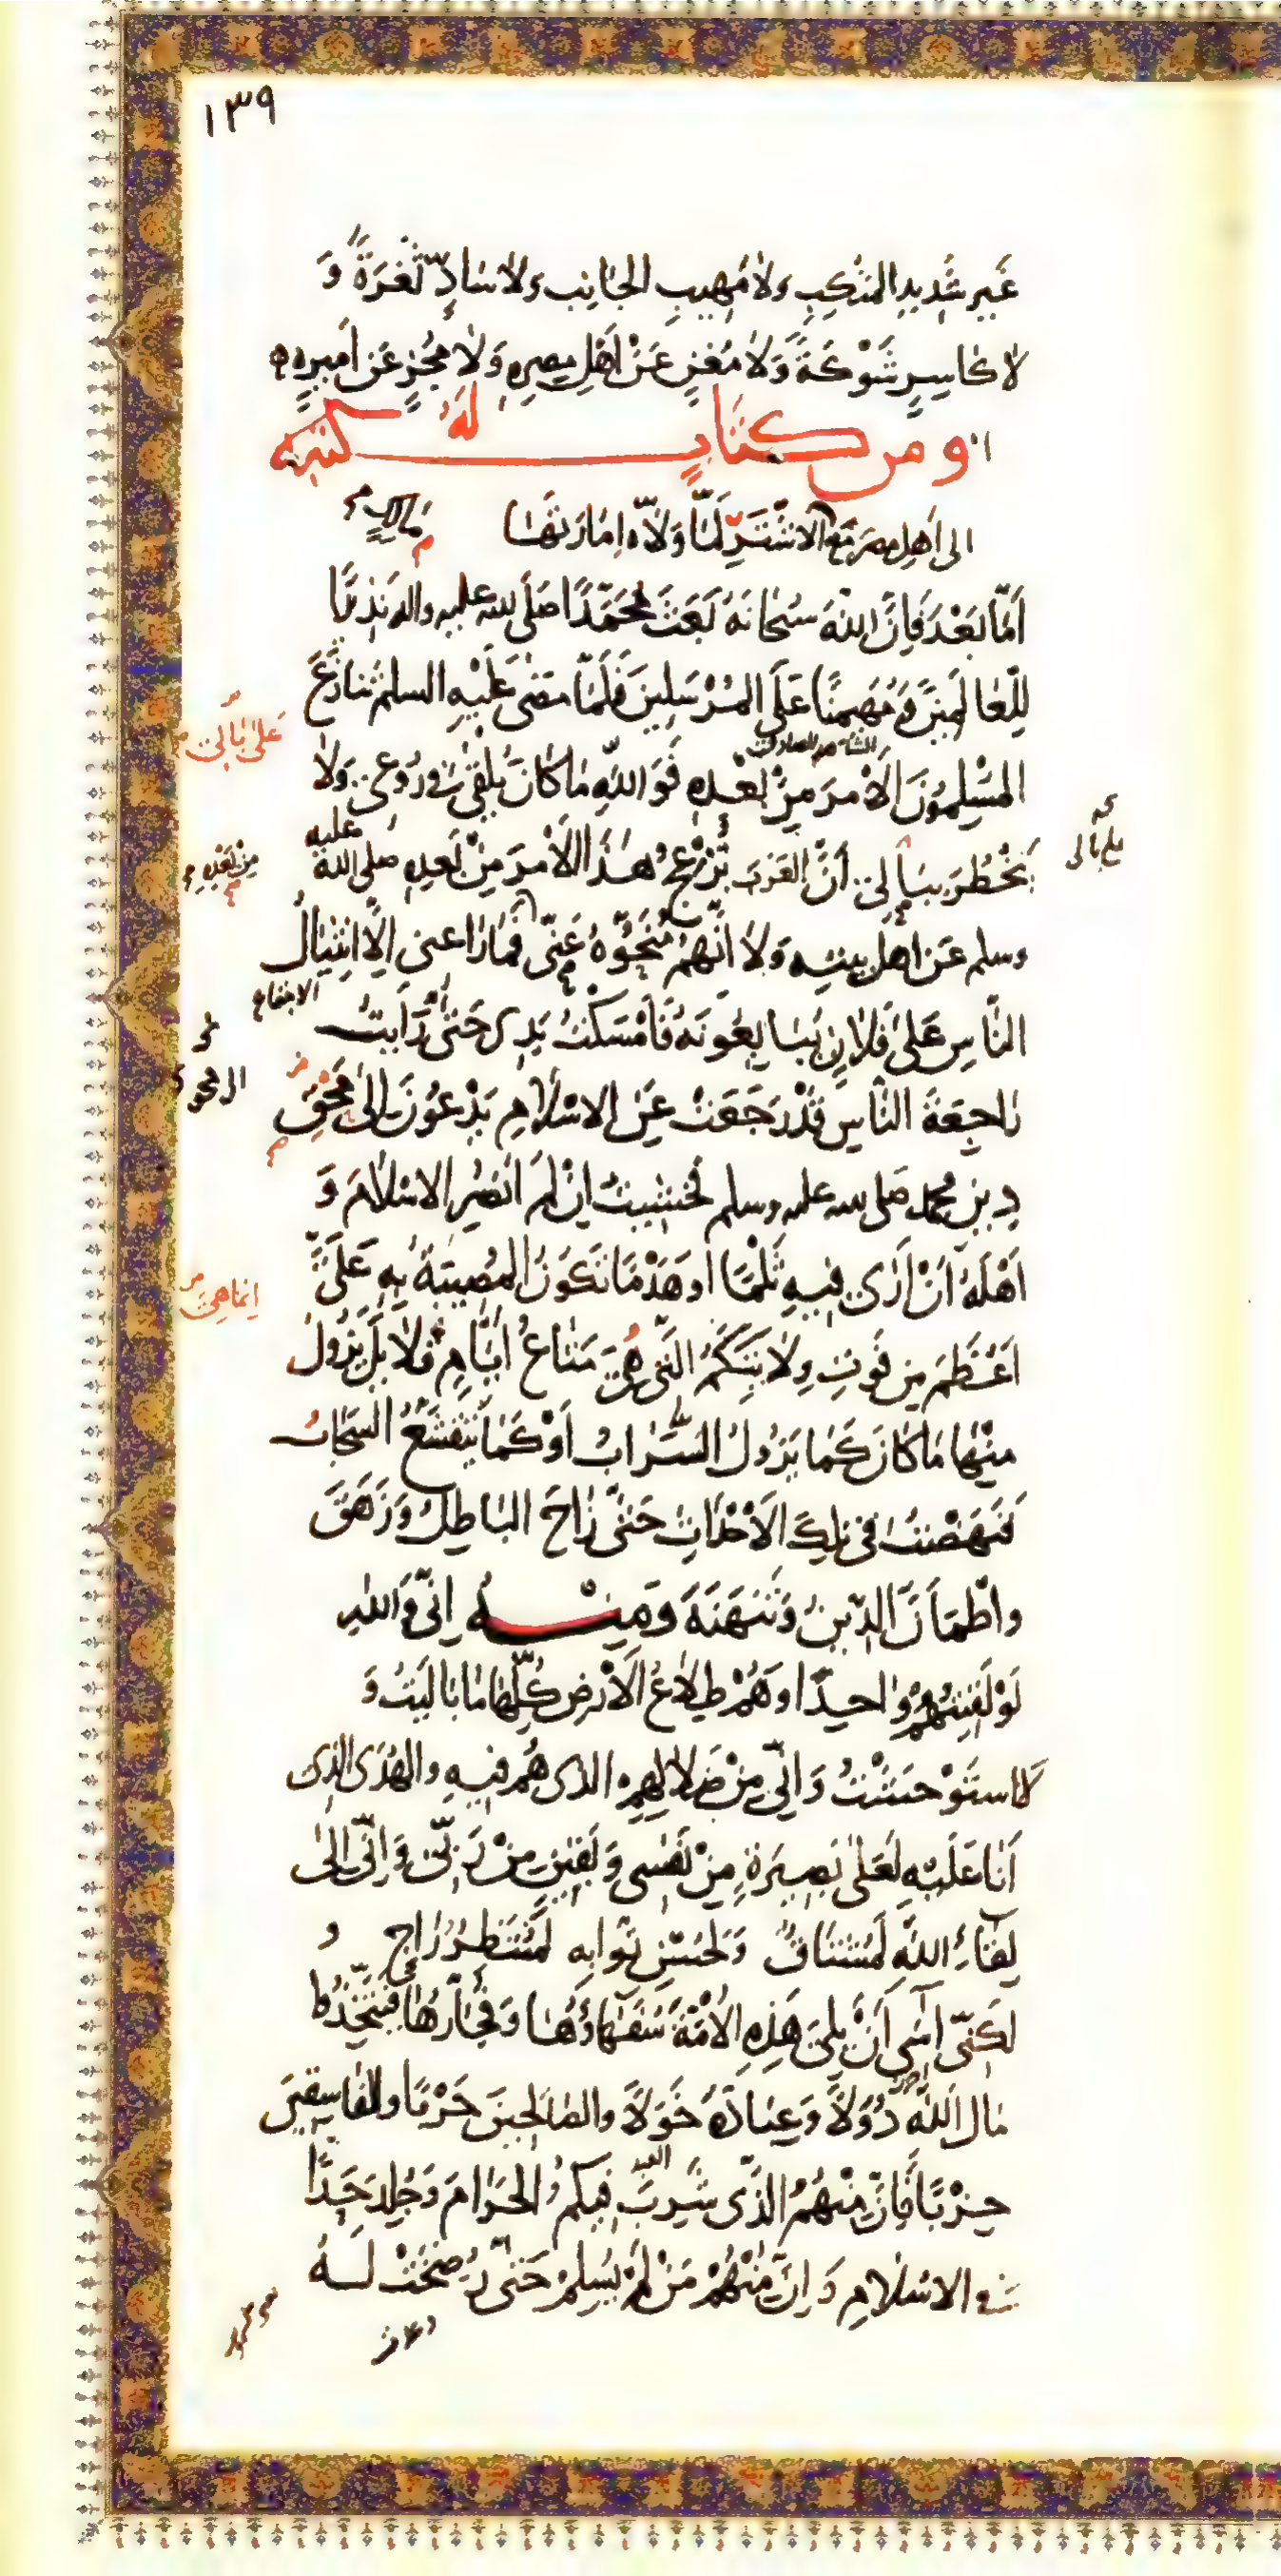 ١٣٩
غَيْرِ شَدِيدِ المَنْكِبِ وَلاٰ مَهِيبِ الجٰانِبِ وَلاٰ سٰادٍّ ثُغْرَةً وَ
لاٰ كٰاسِرٍ شَوْكَةً وَلاٰ مُغْنٍ عَنْ اَهْلِ مِصرِهِ وَلاٰ مُجْزٍ عَن اَميرِهِ
ومن كتابٍ لَهُ كتبه
الى اَهلِ مصرَ مَعَ الاشْتَرِ لَمّٰا وَلاّٰه اِمٰارَتَهٰا
اَمّٰا بَعْدَ فَاِنَّ اللّٰهَ سُبحٰانَهُ بَعَثَ مُحَمَّدًا صَلى الله عليه واله نَذيرًا
لِلعٰالَمينَ وَ مُهَيمِنًا عَلَى المُرْسَلِينَ فَلَمّٰا مَضٰى عَلَيْهِ السلم تَنٰازَعَ
عَلىٰ بٰالى
الشاهد الصادق
المُسْلِمُونَ الاَمْرَ مِنْ بَعْدِهِ فَوَاللّٰهِ مٰا كٰانَ يُلْقىٰ فى رُوعى وَلاٰ
يَخْطُرَ ببٰالِى اَنَّ العَرَبَ تُزْعِجُ هٰذَا الاَمْرَ مِنْ بَعدِهِ صلى الله عليه
مِنْ بَعْدِهِ
وسلم عَن اهلِ بيتِهِ وَلاٰ اَنَّهُمْ مُنَحُّوهُ عَنّى فَمٰارٰاعنى اِلاَّ انْثِيٰالُ
الاجتماع
النّٰاسِ عَلىٰ فُلاٰنٍ يُبٰايِعُونَهُ فَاَمْسَكْتُ يَدِى حَتّٰى رَاَيتُ
رٰاجِعَةَ النّٰاسِ قَدْ رَجَعَتْ عَنِ الاسْلاٰمِ يَدْعُونَ اِلىٰ مَحْقِ
دِينِ محمد صَلى الله عليه وسلم فَخَشِيتُ اِنْ لَمْ اَنصُرِ الاسْلاٰمَ وَ
اَهْلَهُ اَنْ اَرٰى فيهِ ثَلْمًا اَو هَدْمًا تَكُونُ المُصِيبَةُ بِهِ عَلَىَّ
انما هى
اَعْظَمَ مِن فَوتِ وِلاٰيَتِكُمُ الَّتى هِىَ مَتٰاعُ اَيّٰامٍ قَلاٰيِلَ يَزُولُ
مِنْهٰا مٰا كٰانَ كَمٰا يَزُولُ السَّرٰابُ اَوْ كَمٰا يَتَقَشَّعُ السَّحٰابُ
فَنَهَضْتُ فى تلِكَ الاَحْدٰاثِ حَتّٰى زٰاحَ البٰاطِلُ وَزَهَقَ
واطْمَاَنَّ الدّينُ وَتَنَهْنَهَ وَمِنْهُ اِنّى وَاللّٰهِ
لَوْ لَقيتُهُمْ وٰاحِدًا وهُمْ طِلاٰعُ الاَرْضِ كُلِّهٰا مٰا بٰالَيْتُ وَ
لاَ استَوْحَشْتُ وَاِنّى مِنْ ضَلاٰلِهِمِ الذى هُم فيهِ والهُدَى الذى
اَنٰا عَلَيْهِ لَعَلىٰ بَصِيرَةٍ مِنْ نَفْسى وَيَقينٍ مِنْ رَبّى وَاِنّى اِلىٰ
لِقٰاءِ اللّٰهِ لَمُشتٰاقٌ وَلحُسْنِ ثَوٰابِهِ لَمُنْتَظِرٌ رٰاجٍ وَ
لكِنّى آسٰى اَنْ يَلِىَ هٰذِهِ الاُمَّةَ سُفَهٰاؤُهٰا وَفُجّٰارُهٰا فَيَتَّخِذُوا
مٰالَ اللّٰهِ دُوَلاً وَعِبٰادَهُ خَوَلاً والصّٰالِحينَ حَرْبًا والفٰاسِقينَ
حِزْبًا فَاِنَّ مِنْهُمُ الَّذى شَرِبَ فيكُمُ الحَرٰامَ وَجُلِدَ حَدًّا
فى الاسْلاٰمِ وَاِنَّ مِنْهُمْ مَنْ لَمْ يُسْلِمْ حَتّٰى رُضِخَتْ لَهُ